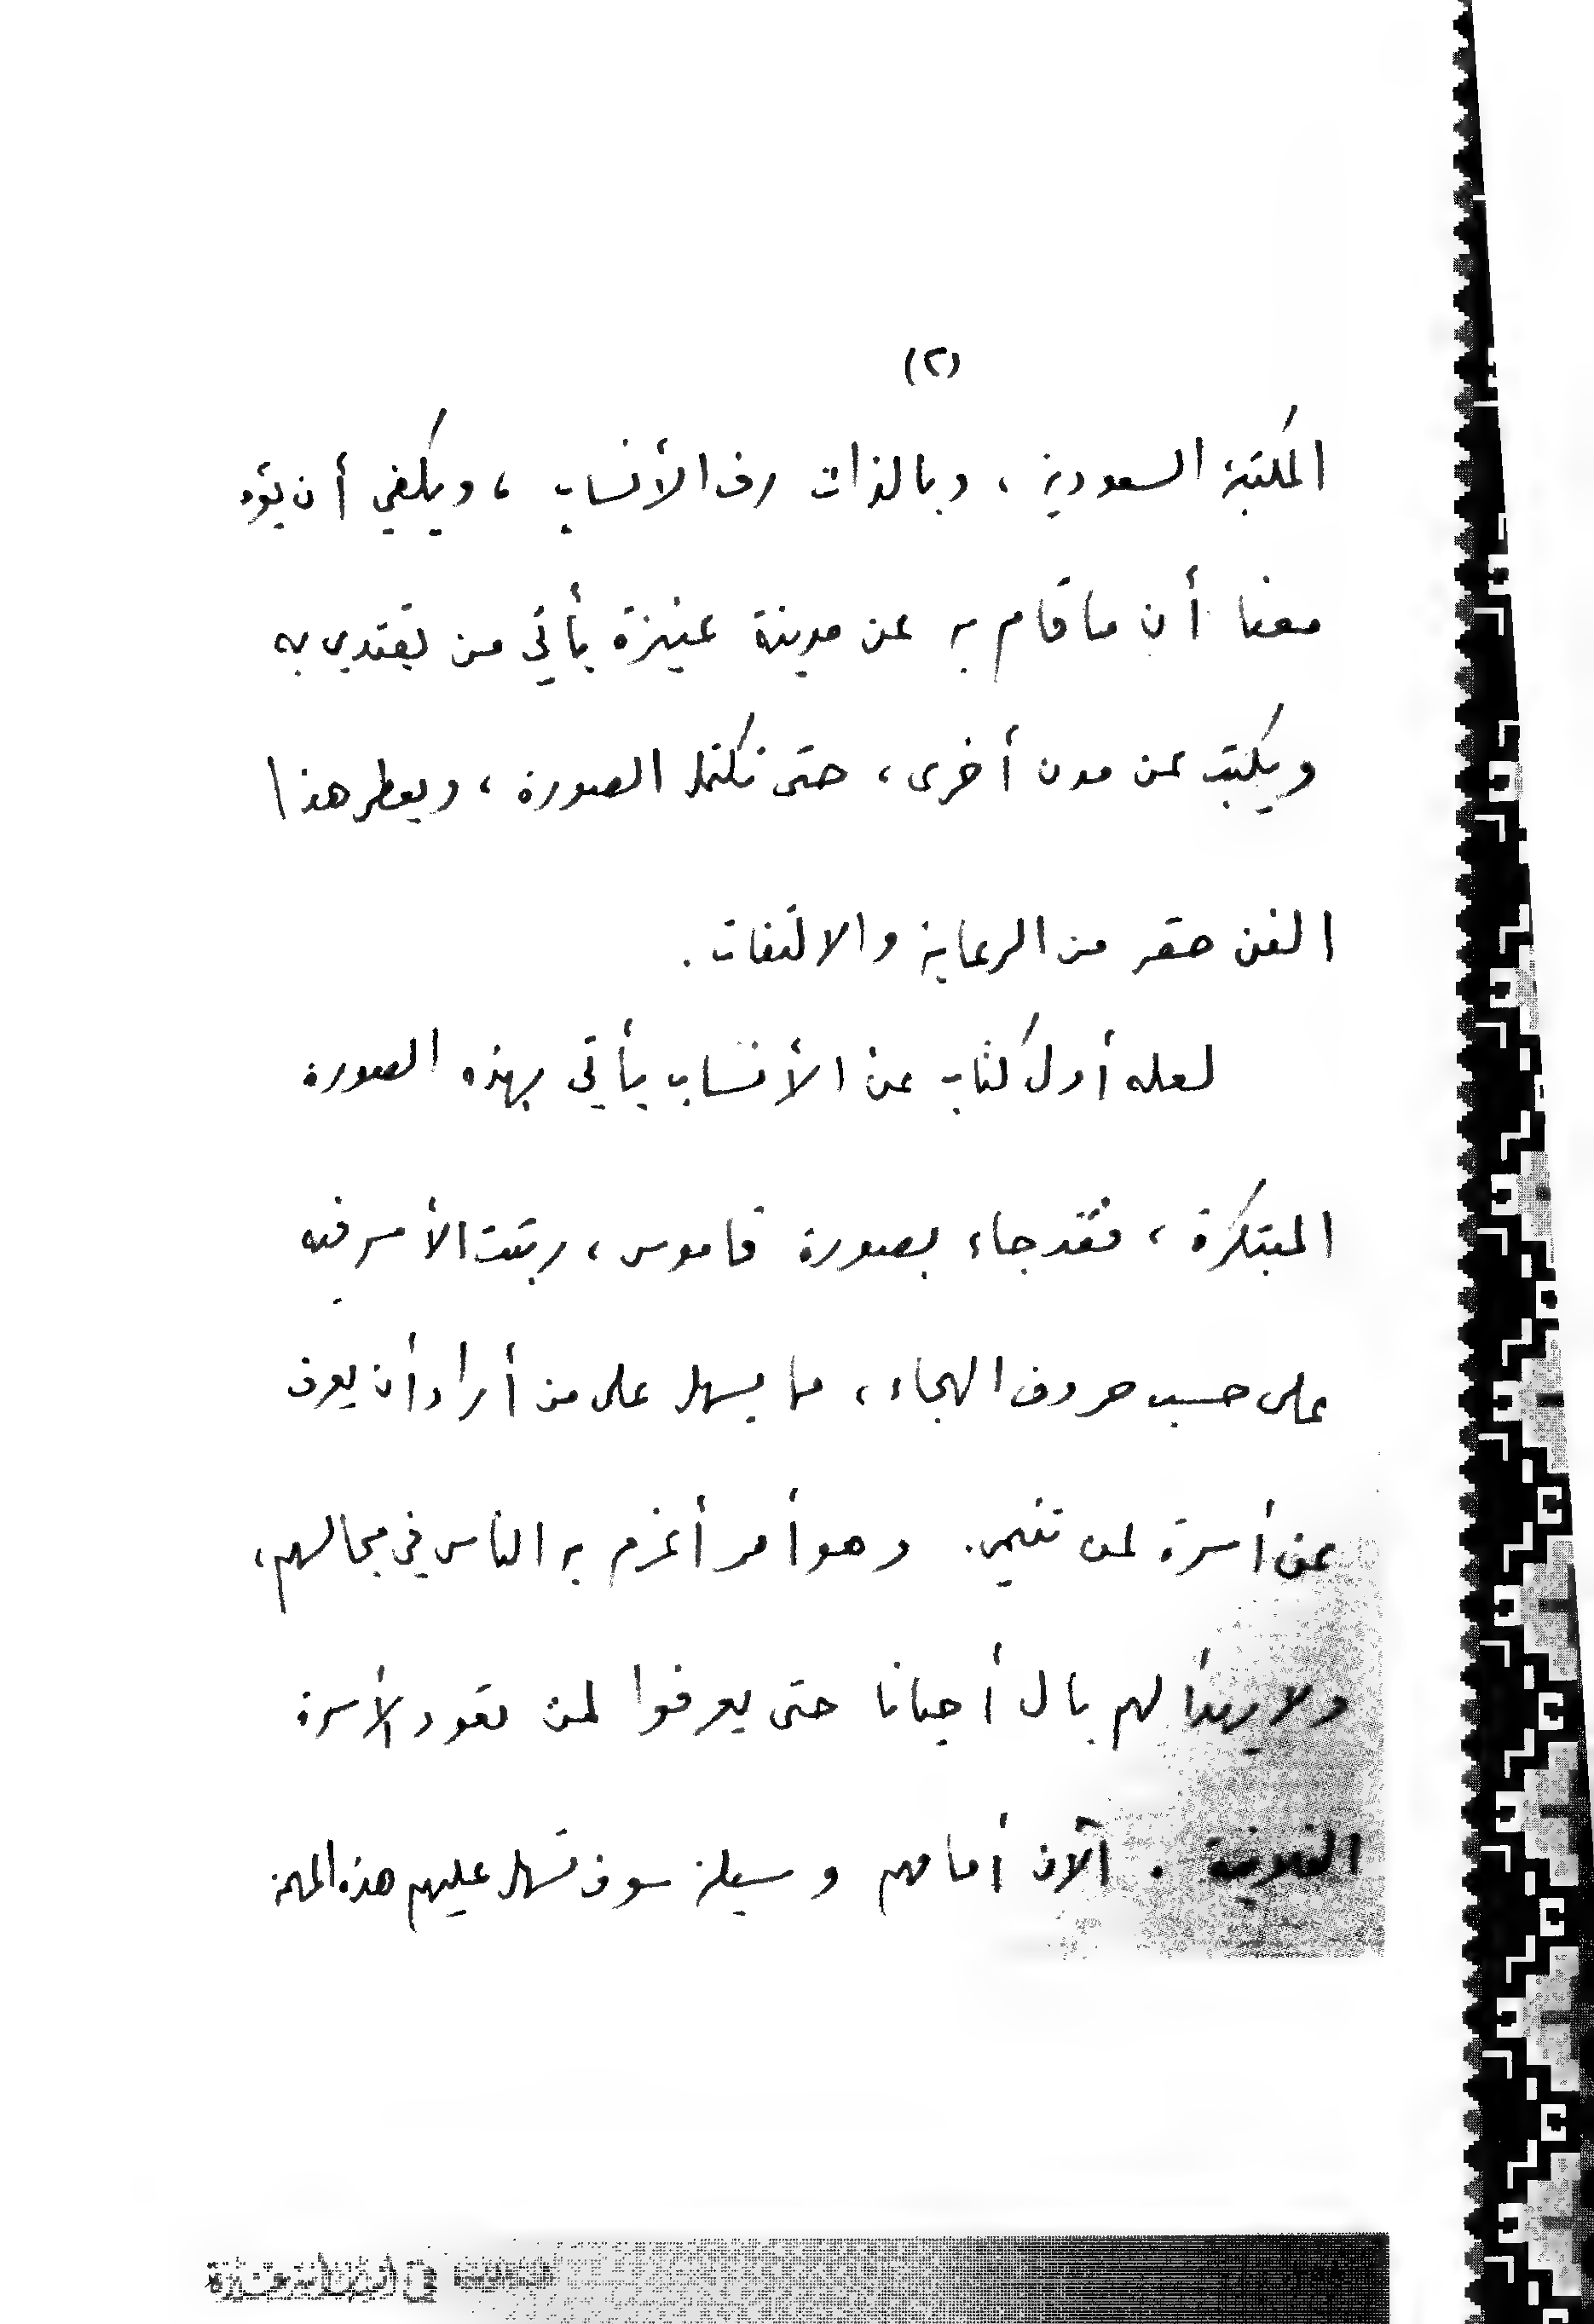 (٢)
المكتبة السعودية ، وبالذات رف الأنساب ، ويكفي أن
معنا أن ما قام به عن مدينة عنيزة يأتي من يقتدي به
ويكتب عن مدن أخرى ، حتى تكتمل الصورة ، ويعطى هذا
الفن حقه من الرعاية والالتفات .
لعله أول كتاب عن الأنساب يأتي بهذه الصورة
المبتكرة ، فقد جاء بصورة قاموس ، رتبت الأسر فيه
على حسب حروف الهجاء ، مما يسهل على من أراد أن يعرف
عن أسرة لمن تنتمي . وهو أمر أغرم به الناس في مجالسهم ،
ولا يهدأ لهم بال أحيانا حتى يعرفوا لمن تعود الأسرة
الفلانية . الآن أمامهم وسيلة سوف تسهل عليهم هذه المهمة